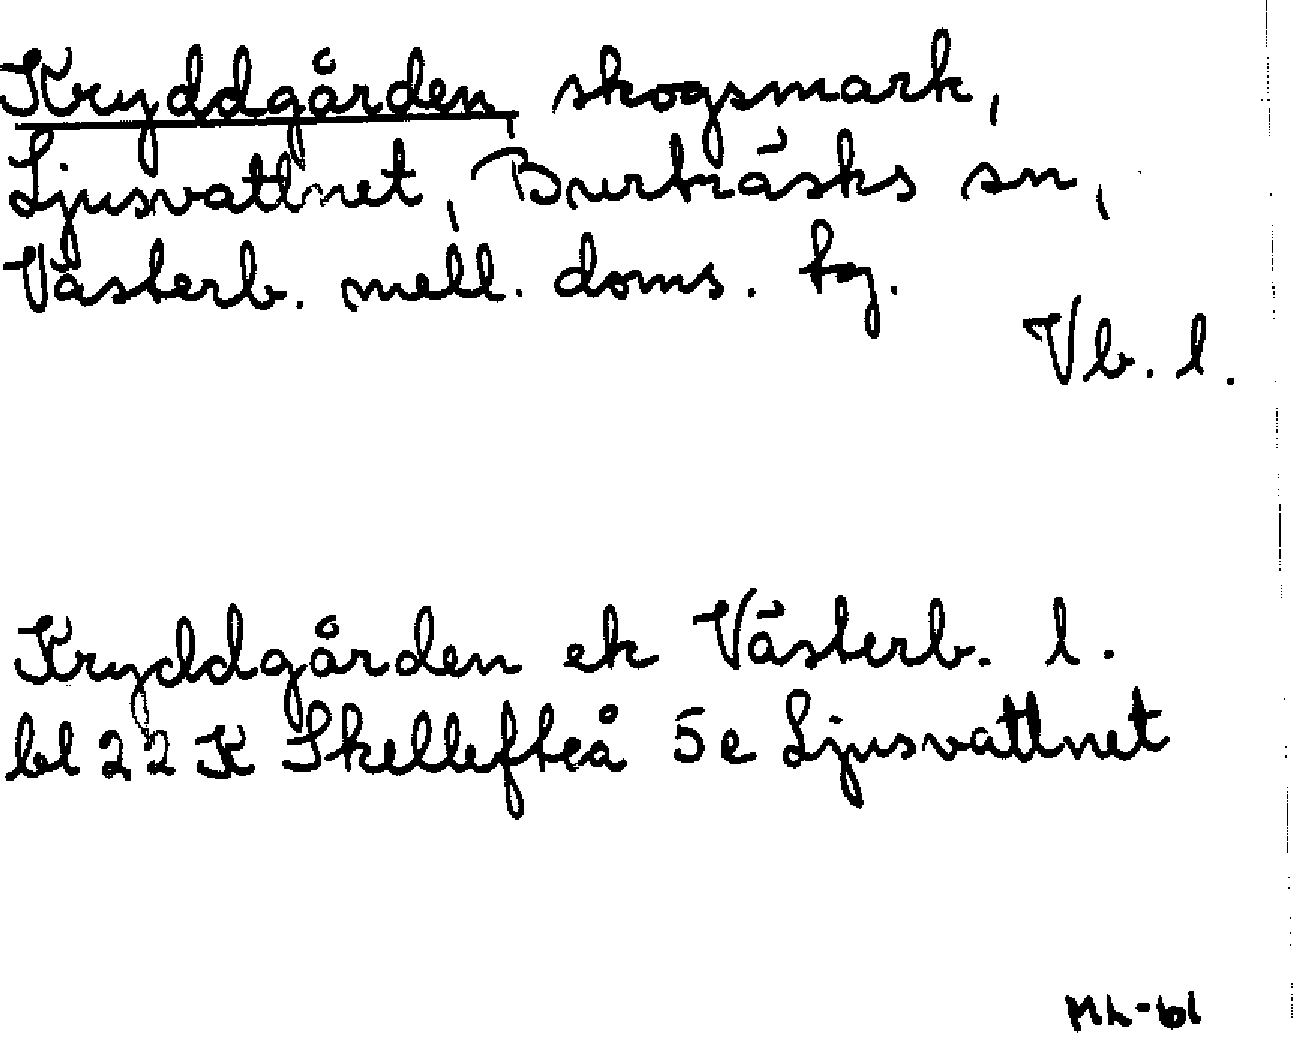 Kryddgården, skogsmark,
Ljusvattnet, Burträsks sn,
Västerb. mell. doms. tg.
Vb. l.
Kryddgården ek Västerb. l.
bl 22 K Skellefteå 5e Ljusvattnet